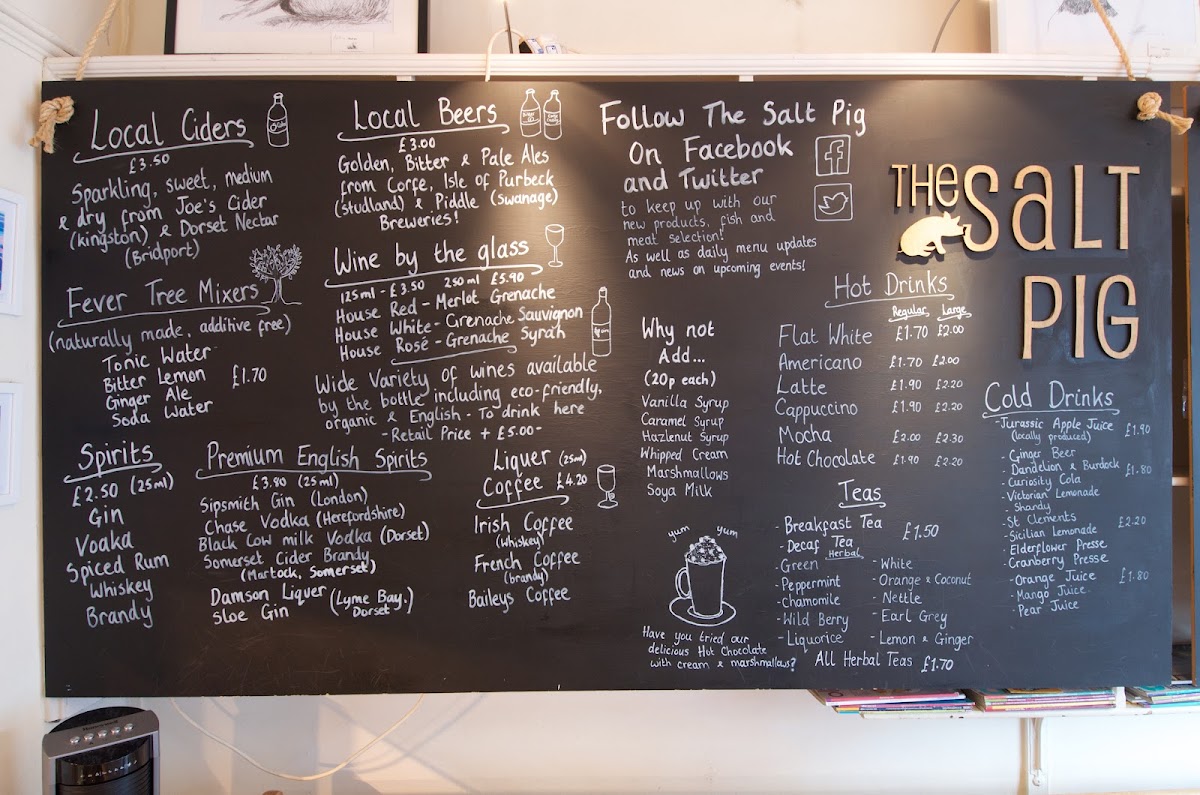 Local Ciders
£3.50
Sparkling, sweet, medium
& dry from Joe's Cider
(Kingston) & Dorset Nectar
(Bridport)
Fever Tree Mixers
(naturally made, additive free)
Tonic Water
Bitter Lemon
Ginger Ale
Soda Water
£1.70
Spirits
£2.50 (25ml)
Gin
Vodka
Spiced Rum
Whiskey
Brandy
Local Beers
£3.00
Golden, Bitter & Pale Ales
from Corfe, Isle of Purbeck
(studland) & Piddle (Swanage)
Breweries!
Wine by the glass
125ml - £3.50 250ml £5.90
House Red - Merlot Grenache
House White - Grenache Sauvignon
House Rosé - Grenache Syrah
Wide Variety of wines available
by the bottle including eco-friendly,
organic & English - To drink here
- Retail Price + £5.00 -
Premium English Spirits
£3.80 (25ml)
Sipsmith Gin (London)
Chase Vodka (Herefordshire)
Black Cow milk Vodka (Dorset)
Somerset Cider Brandy
(Martock, Somerset)
Damson Liquer
Sloe Gin
(Lyme Bay,
Dorset)
Liquer (25ml)
Coffee £4.20
Irish Coffee
(Whiskey)
French Coffee
(brandy)
Baileys Coffee
Follow The Salt Pig
On Facebook
and Twitter
to keep up with our
new products, fish and
meat selection!
As well as daily menu updates
and news on upcoming events!
Why not
Add...
(20p each)
Vanilla Syrup
Caramel Syrup
Hazlenut Syrup
Whipped Cream
Marshmallows
Soya Milk
yum yum
Have you tried our
delicious Hot Chocolate
with cream & marshmallows?
THe SaLT
PIG
Hot Drinks
Regular Large
Flat White £1.70 £2.00
Americano £1.70 £2.00
Latte £1.90 £2.20
Cappuccino £1.90 £2.20
Mocha £2.00 £2.30
Hot Chocolate £1.90 £2.20
Teas
- Breakfast Tea
- Decaf Tea
£1.50
Herbal
- Green
- Peppermint
- Chamomile
- Wild Berry
- Liquorice
- White
- Orange & Coconut
- Nettle
- Earl Grey
- Lemon & Ginger
All Herbal Teas £1.70
Cold Drinks
- Jurassic Apple Juice £1.90
(locally produced)
- Ginger Beer
- Dandelion & Burdock £1.80
- Curiosity Cola
- Victorian Lemonade
- Shandy
- St Clements £2.20
- Sicilian Lemonade
- Elderflower Presse
- Cranberry Presse
- Orange Juice £1.80
- Mango Juice
- Pear Juice